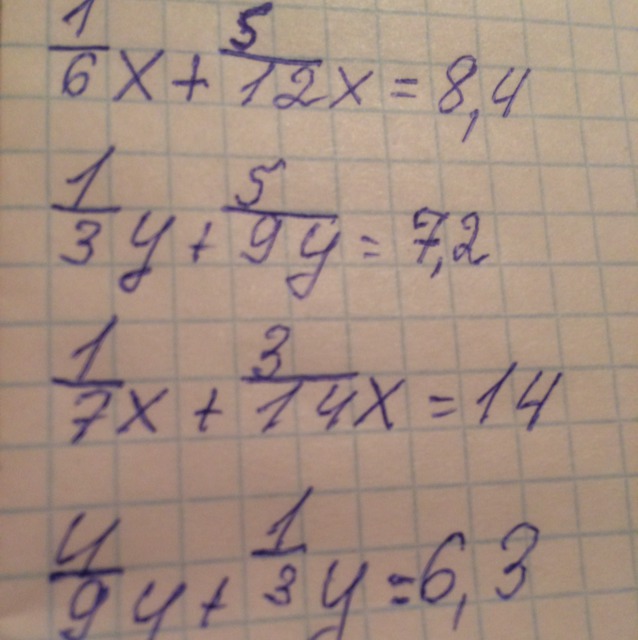 1/6 x + 5/12 x = 8,4
1/3 y + 5/9 y = 7,2
1/7 x + 3/14 x = 14
4/9 y + 1/3 y = 6,3